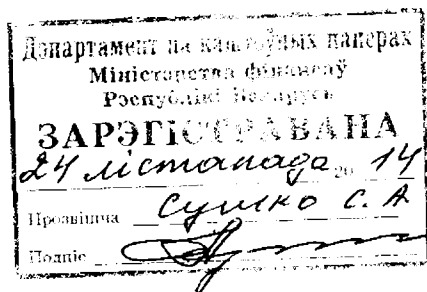 Дэпартамент па каштоўных паперах
Міністэрства фінансаў
Рэспублікі Беларусь
ЗАРЭГІСТРАВАНА
24 лістапада 20 14
Прозвішча Сушко С. А
Подпіс